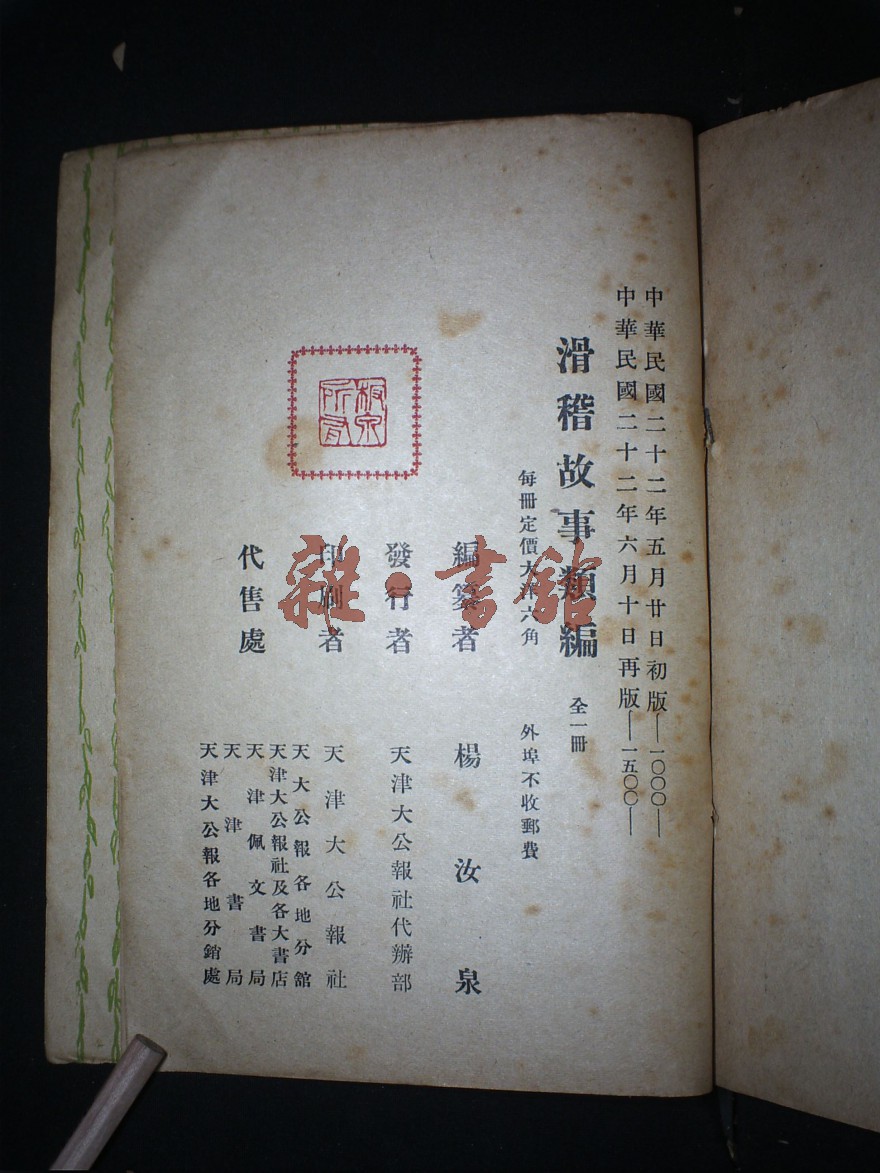 中華民國二十二年五月廿日初版—一〇〇〇—
中華民國二十二年六月十日再版—一五〇〇—
滑稽故事類編 全一冊
每冊定價大洋六角 外埠不收郵費
編纂者 楊汝泉
發行者 天津大公報社代辦部
印刷者 天津大公報社
代售處
天大公報各地分館
天津大公報社及各大書店
天津佩文書局
天津書局
天津大公報各地分銷處
雜·書館